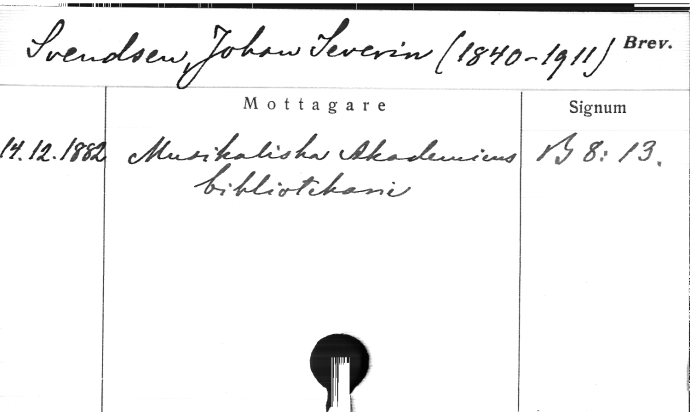 Svendsen, Johan Severin (1840-1911) Brev.
Mottagare Signum
14.12.1882 Musikaliska Akademiens B 8: 13.
bibliotekarie